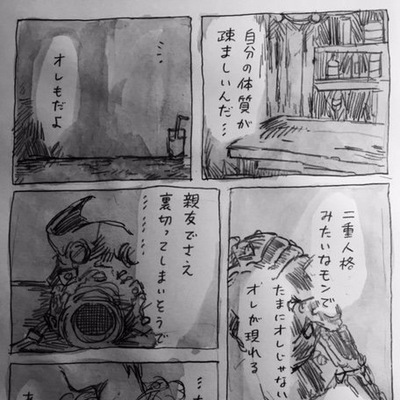 自分の体質が
疎ましいんだ…
…
オレもだよ
二重人格
みたいなモンで
たまにオレじゃない
オレが現れる
親友でさえ
裏切ってしまいそうで
……